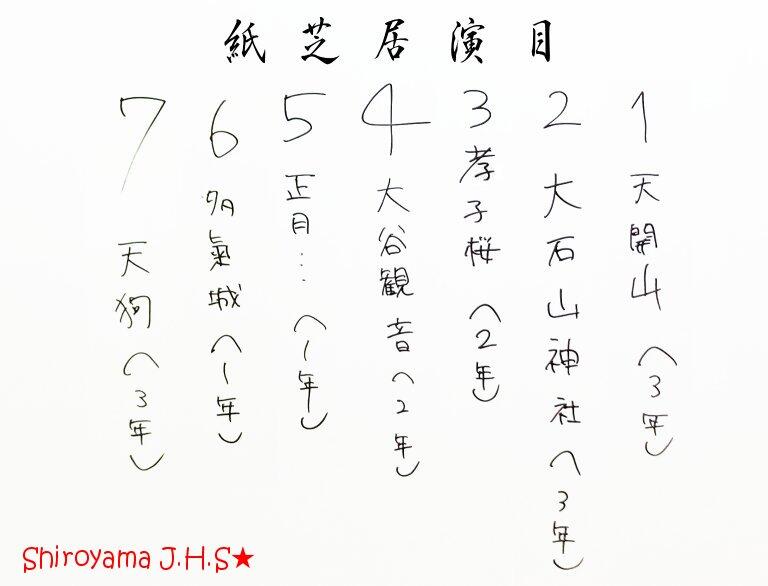 紙芝居演目
1 天開山（3年）
2 大石山神社（3年）
3 孝子桜（2年）
4 大谷観音（2年）
5 正月…（1年）
6 多氣城（1年）
7 天狗（3年）
Shiroyama J.H.S★